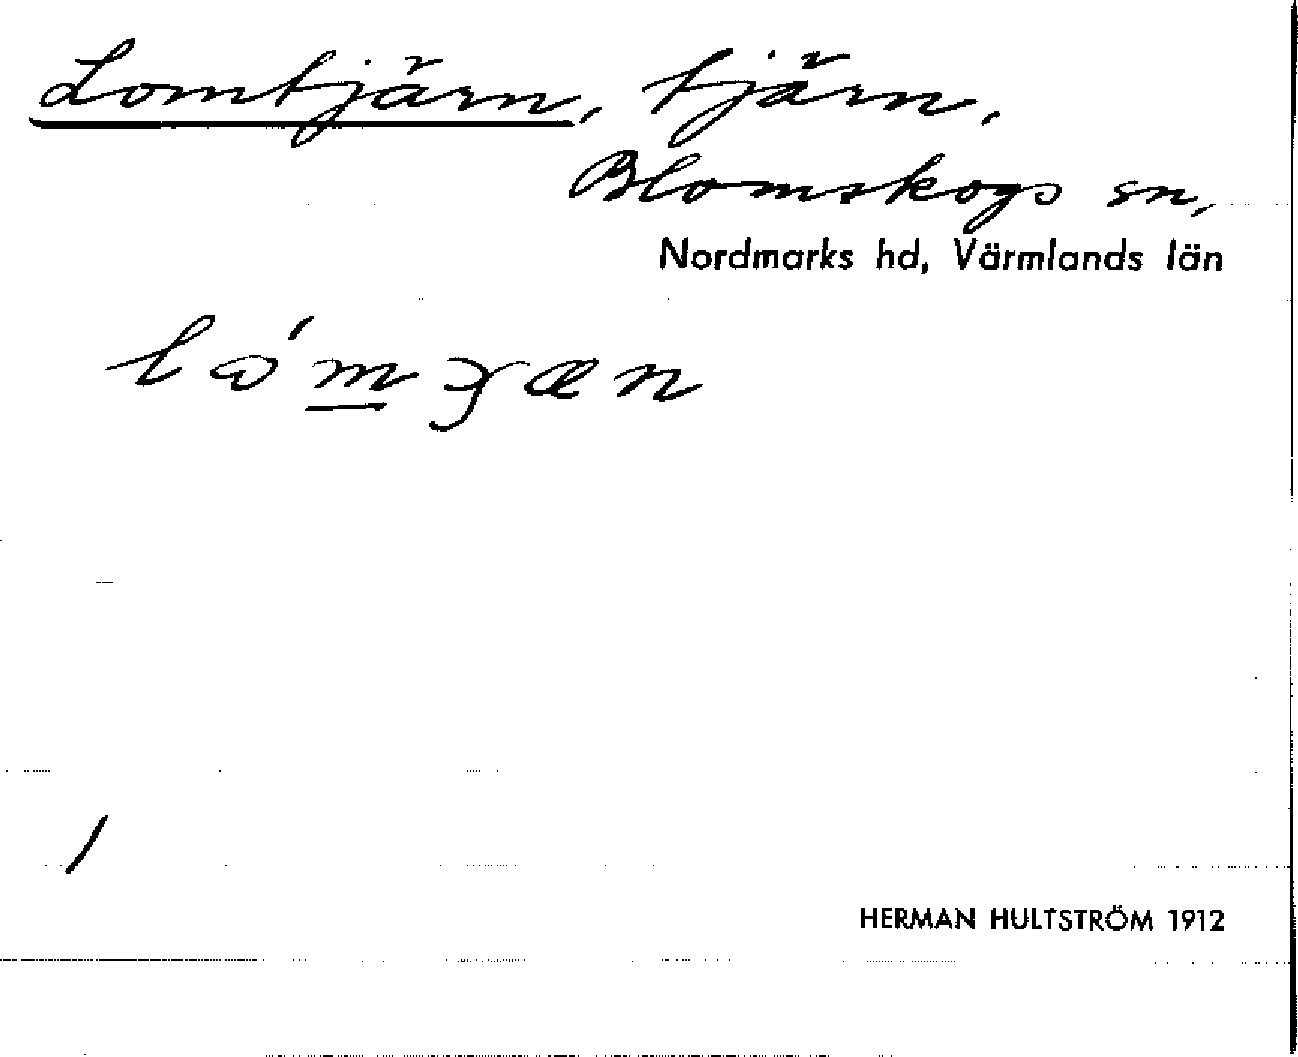 Lomtjärn, tjärn,
Blomskogs sn,
Nordmarks hd, Värmlands län
HERMAN HULTSTRÖM 1912